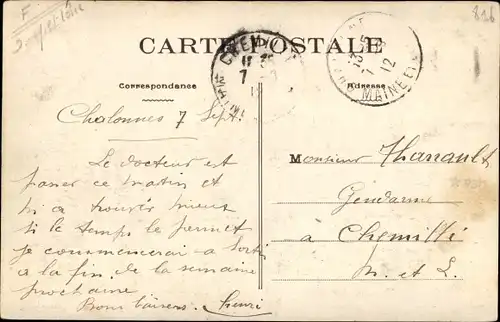 CARTE POSTALE
Correspondance
Adresse
CHEMILLÉ
MAINE ET
12
Chalonnes 7 Sept.
Le docteur est
passer ce matin et
m'a trouvée mieux
si le temps le permet
je commencerai a sortir
a la fin de la semaine
prochaine
Bons baisers. Henri
Monsieur Harrault
Gendarme
à Chemillé
M. et L.